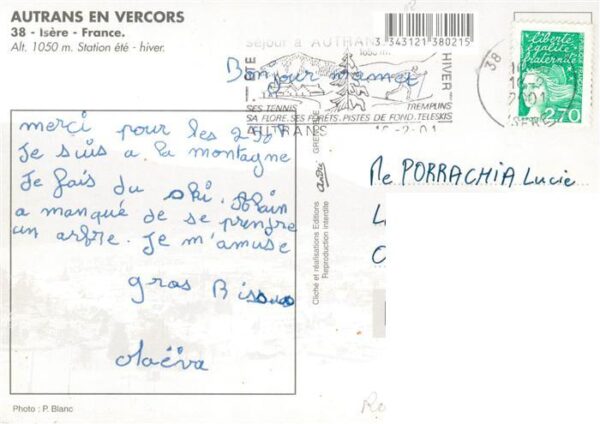 AUTRANS EN VERCORS
38 - Isère - France.
Alt. 1050 m. Station été - hiver.
3 343121 380215
Séjour à AUTRANS
1050 m.
HIVER
SES TENNIS TREMPLINS
SA FLORE. SES FORÊTS. PISTES DE FOND. TELESKIS
AUTRANS 16-2-01
38
2001
ISERE
liberté
égalité
fraternité
2,70
Bonjour mamet
merci pour les
Je suis a la montagne
Je fais du ski.
a manqué de se prendre
un arbre. Je m'amuse
gros
Maëva
Me PORRACHIA Lucie
André
Cliché et réalisations Editions
Reproduction interdite
Photo : P. Blanc